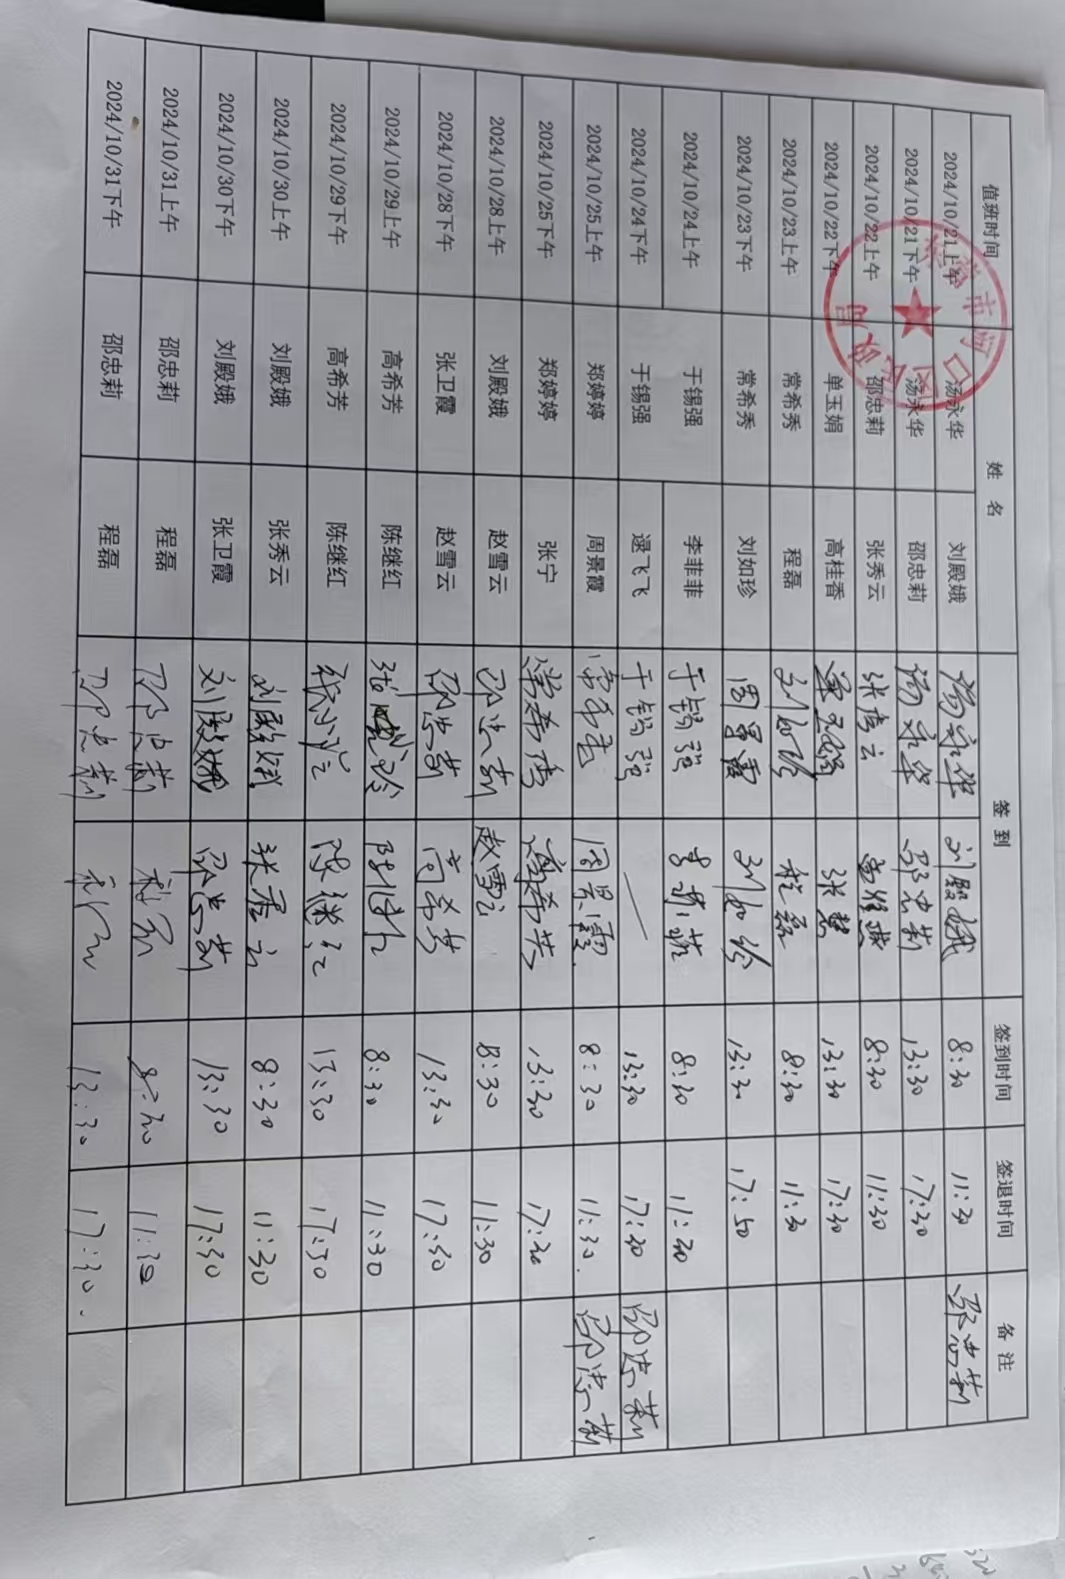 值班时间 姓 名 签 到 签到时间 签退时间 备 注
2024/10/21上午 汤永华 刘殿娥 汤永华 刘殿娥 8:30 11:30 邵忠莉
2024/10/21下午 汤永华 邵忠莉 汤永华 邵忠莉 13:30 17:30
2024/10/22上午 邵忠莉 张秀云 张秀云 8:30 11:30
2024/10/22下午 单玉娟 高桂香 单玉娟 张慧 13:30 17:30
2024/10/23上午 常希秀 程磊 刘如珍 程磊 8:30 11:30
2024/10/23下午 常希秀 刘如珍 周景霞 刘如珍 13:30 17:50
2024/10/24上午 于锡强 李菲菲 于锡强 李菲菲 8:30 11:30
2024/10/24下午 于锡强 逯飞飞 于锡强 13:30 17:30 邵忠莉
2024/10/25上午 郑婷婷 周景霞 常希秀 周景霞 8:30 11:30. 邵忠莉
2024/10/25下午 郑婷婷 张宁 常希秀 高希芳 13:30 17:30
2024/10/28上午 刘殿娥 赵雪云 邵忠莉 赵雪云 8:30 11:30
2024/10/28下午 张卫霞 赵雪云 邵忠莉 高希芳 13:30 17:30
2024/10/29上午 高希芳 陈继红 陈继红 8:30 11:30
2024/10/29下午 高希芳 陈继红 陈继红 13:30 17:30
2024/10/30上午 刘殿娥 张秀云 刘殿娥 张秀云 8:30 11:30
2024/10/30下午 刘殿娥 张卫霞 刘殿娥 邵忠莉 13:30 17:30
2024/10/31上午 邵忠莉 程磊 邵忠莉 程磊 8:30 11:30
2024/10/31下午 邵忠莉 程磊 邵忠莉 程磊 13:30 17:30.